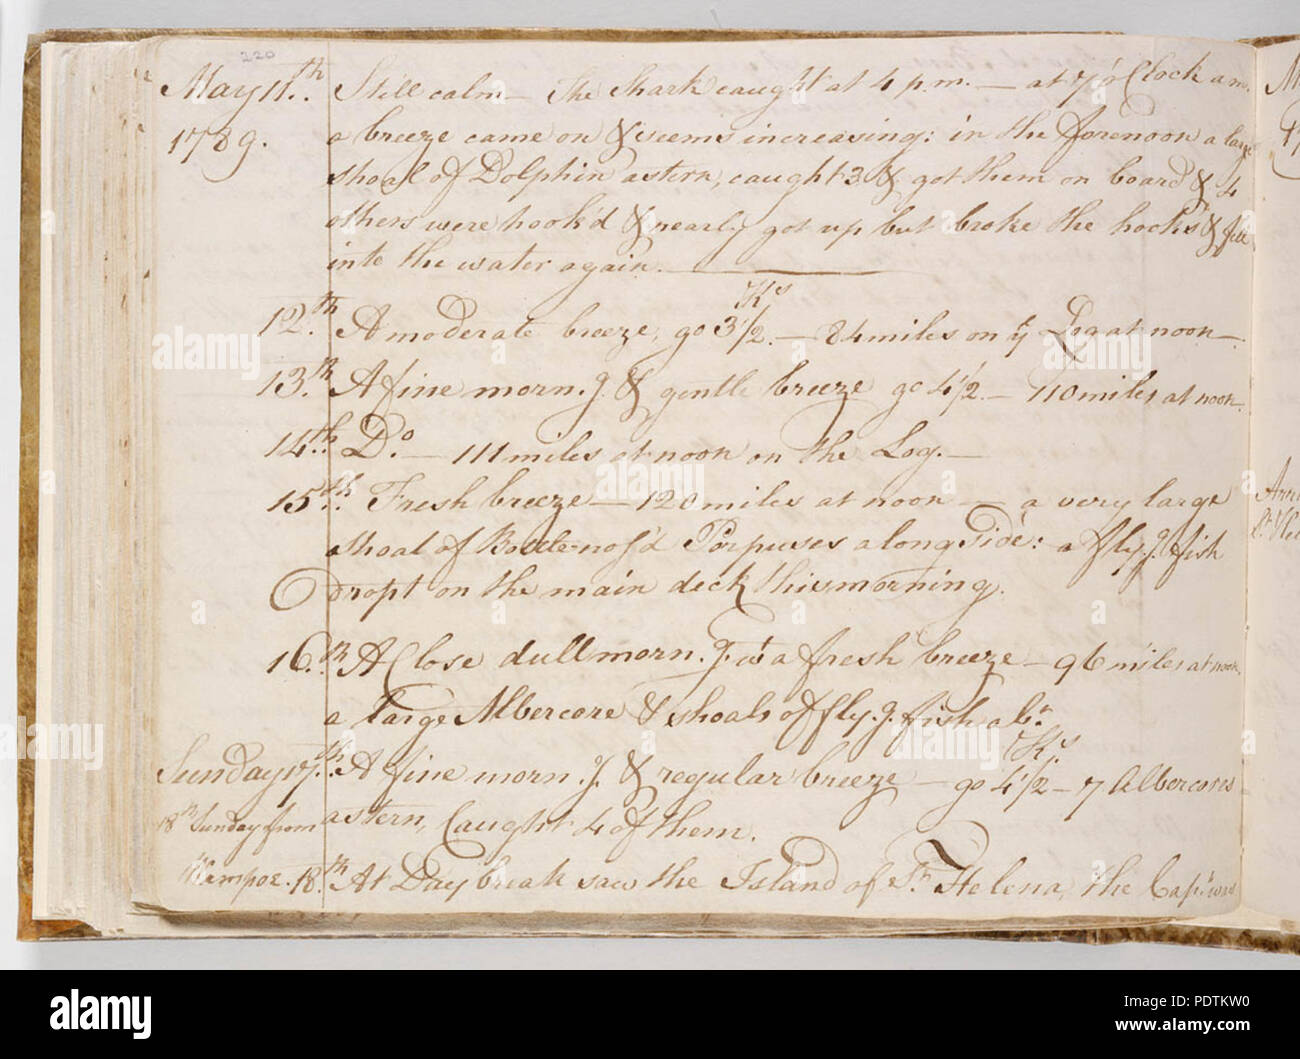 220
May 11.th Still calm - The Shark caught at 4 p.m. - at 7 o'Clock a m.
1789. a breeze came on & seems increasing: in the forenoon a large
shoal of Dolphin astern, caught 3 & got them on board & 4
others were hook'd & nearly got up but broke the hooks & fell
into the water again.
12.th A moderate breeze, go 3 1/2 K.s - 84 miles on ye Log at noon -
13.th A fine morn.g & gentle breeze go 4 1/2 - 110 miles at noon.
14.th D.o - 111 miles at noon on the Log. -
15.th Fresh breeze - 120 miles at noon - a very large
shoal of Bottle nos'd Porpuses along Side: a fly.g fish
Dropt on the main deck this morning.
16.th A Close dull morn.g wt a fresh breeze - 96 miles at noon,
a large Albercore & shoals of fly.g fish ab.t
Sunday 17.th A fine morn.g & regular breeze - go 4 1/2 K.s - 7 Albercores
18th Sunday from astern, Caught 4 of them.
Wampoe. 18.th At Day break saw the Island of St Helena, the Cap.t was
Arri